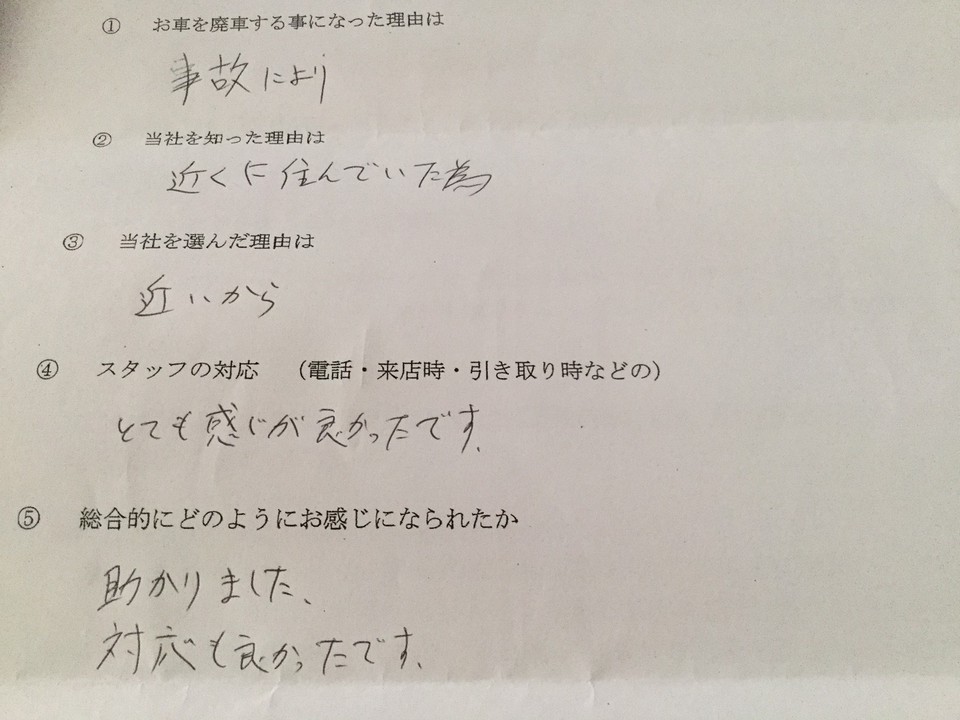 ① お車を廃車する事になった理由は
事故により
② 当社を知った理由は
近くに住んでいた為
③ 当社を選んだ理由は
近いから
④ スタッフの対応 （電話・来店時・引き取り時などの）
とても感じが良かったです.
⑤ 総合的にどのようにお感じになられたか
助かりました、
対応も良かったです.